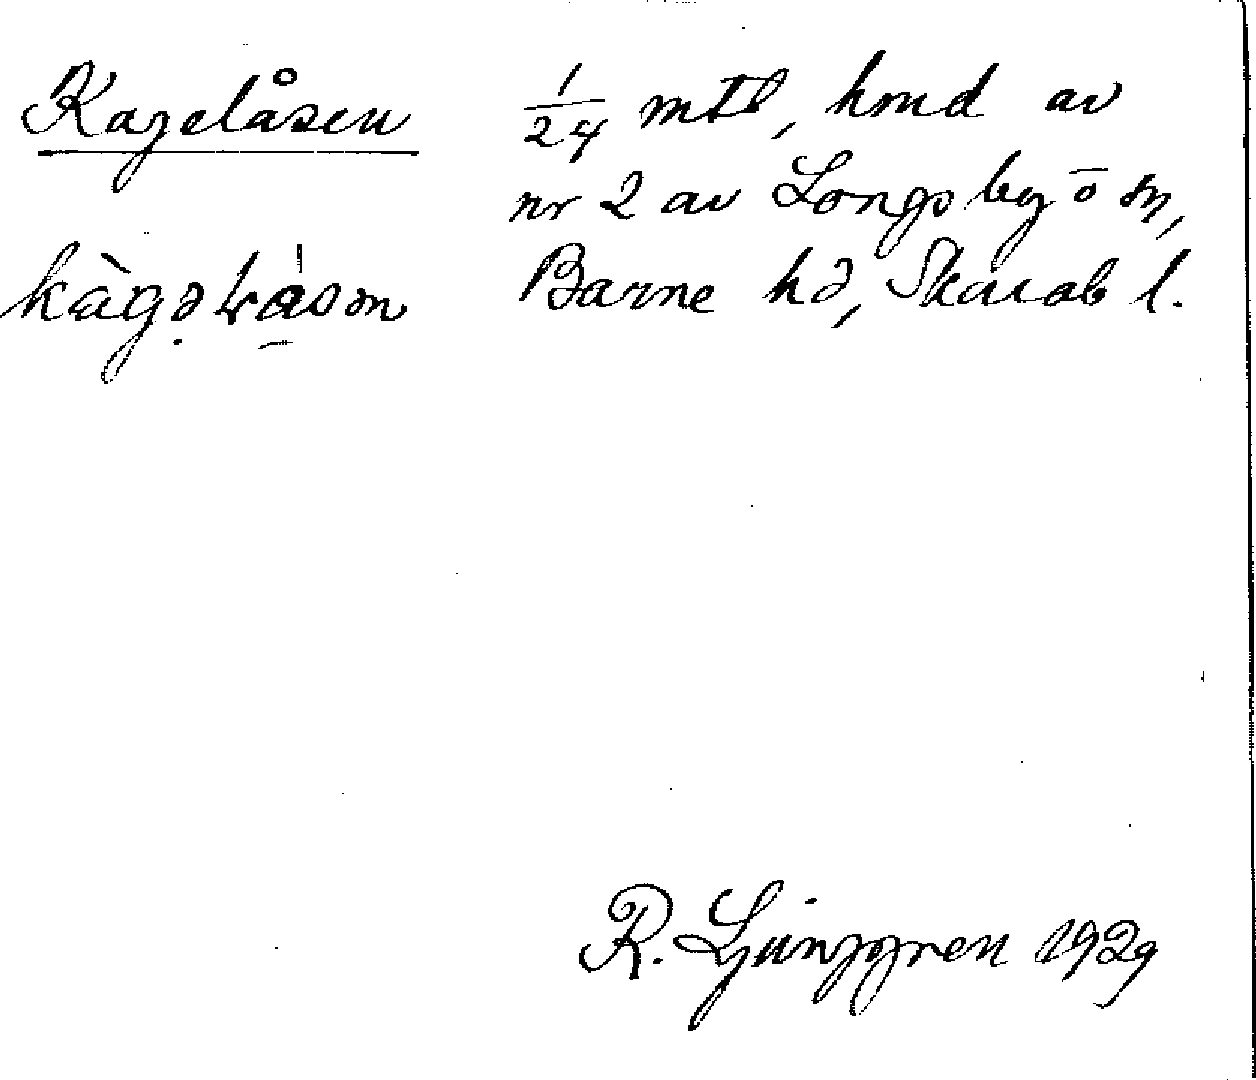 Kagelåsen
kàgəɫåsən
1/24 mtl, hmd av
nr 2 av Longs by ō sn,
Barne hd, Skarab l.
R. Ljunggren 1929